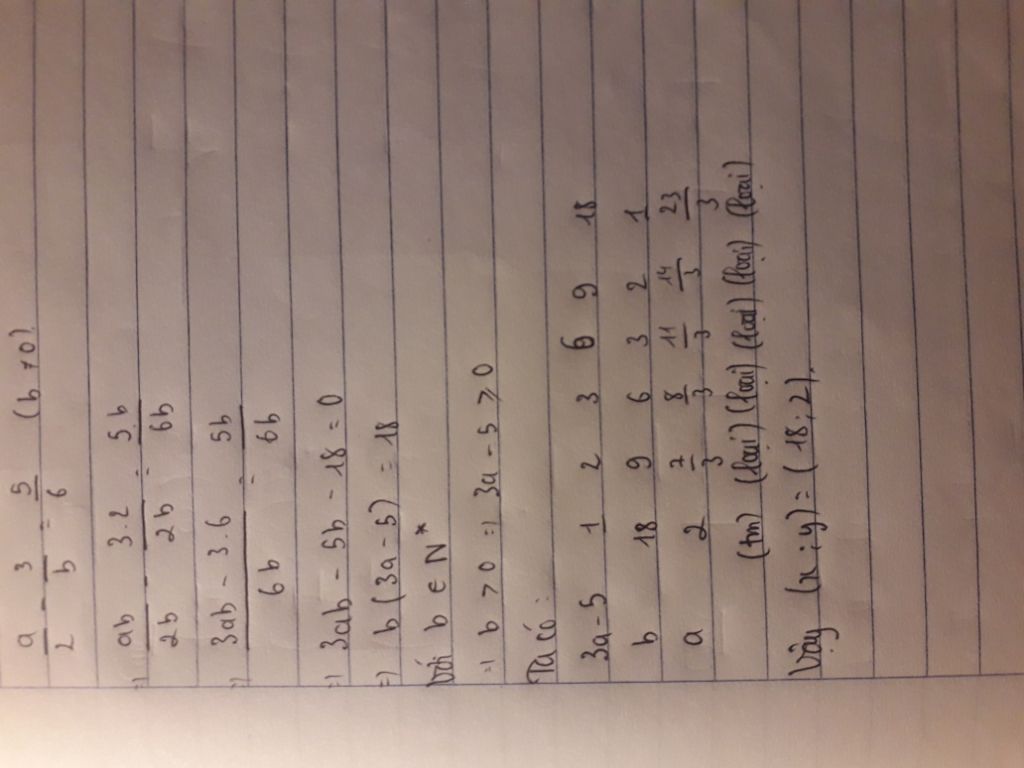 a/2 - 3/b = 5/6 (b ≠ 0)
=) ab/2b - 3.2/2b = 5.b/6b
=) 3ab - 3.6/6b = 5b/6b
=) 3ab - 5b - 18 = 0
=) b (3a - 5) = 18
Với b ∈ N*
=) b > 0 =) 3a - 5 > 0
Ta có:
3a-5 1 2 3 6 9 18
b 18 9 6 3 2 1
a 2 7/3 8/3 11/3 14/3 23/3
(tm) (loại) (loại) (loại) (loại) (loại)
Vậy (x; y) = (18; 2).